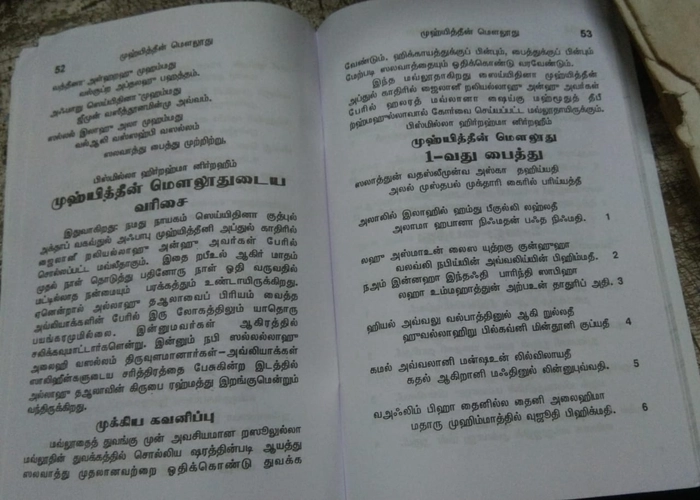 52
முஹ்யித்தீன் மெளலூது
வத்தீனா அஸ்ஹுறு முஹம்மது
வஸ்குபு அப்தஹு பஹத்தம்.
அஹ்மாது ஸெய்யிதினா முஹம்மது
வஆலி வஸ்ஸஹ்பி வஸல்லம்
ஸலவாத்து பைத்து முற்றிற்று.
பிஸ்மில்லா ஹிர்றஹ்மா னிர்றஹீம்
முஹ்யித்தீன் மௌலூதுடைய
வரிசை
இதுவாகிறது: நமது நாயகம் ஸெய்யிதினா குத்புல்
அக்தாப் வகவ்துல் அஃபாபு முஹ்யித்தீனி அப்துல் காதிரில்
ஜைலானீ றலியல்லாஹு அன்ஹு அவர்கள் பேரில்
சொல்லப்பட்ட மவ்லீதாகும். இதை றபீஉல் ஆகிர் மாதம்
முதல் நாள் தொடுத்து பதினோரு நாள் ஓதி வருவதில்
மட்டில்லாத நன்மையும் பரக்கத்தும் உண்டாயிருக்கிறது.
ஏனென்றால் அல்லாஹு தஆலாவைப் பிரியம் வைத்த
அவ்லியாக்களின் பேரில் இரு லோகத்திலும் யாதொரு
பயங்கரமுமில்லை. இன்னுமவர்கள் ஆகிரத்தில்
சலிக்கவுமாட்டார்களென்று. இன்னும் நபி ஸல்லல்லாஹு
அலைஹி வஸல்லம் திருவுளமானார்கள்-அவ்லியாக்கள்
ஸாலிஹீன்களுடைய சரித்திரத்தை பேசுகின்ற இடத்தில்
அல்லாஹு தஆலாவின் கிருபை ரஹ்மத்து இறங்குமென்றும்
வந்திருக்கிறது.
முக்கிய கவனிப்பு
மவ்லூதைத் துவங்கு முன் அவசியமான றஸூலுல்லா
மவ்லூதின் துவக்கத்தில் சொல்லிய ஷரத்தின்படி ஆயத்து
ஸலவாத்து முதலானவற்றை ஓதிக்கொண்டு துவக்க
முஹ்யித்தீன் மௌலூது
53
வேண்டும். ஹிக்காயத்துக்குப் பின்பும், பைத்துக்குப் பின்பும்
மேற்படி ஸலவாத்தையும் ஓதிக்கொண்டு வரவேண்டும்.
இந்த மவ்லூதாகிறது ஸைய்யிதினா முஹ்யித்தீன்
அப்துல் காதிரில் ஜைலானீ றலியல்லாஹு அன்ஹு அவர்கள்
பேரில் ஹலரத் மவ்லானா ஷைய்கு மஹ்மூதுத் தீபீ
றஹ்மஹுல்லாவால் கோர்வை செய்யப்பட்ட மவ்லூதாயிருக்கும்.
பிஸ்மில்லா ஹிர்றஹ்மா னிர்றஹீம்
முஹ்யித்தீன் மௌலூது
1-வது பைத்து
ஸலாத்துன் வதஸ்லீமுன்வ அஸ்கா தஹிய்யதி
அலல் முஸ்தபல் முக்தாரி கைரில் பரிய்யத்தீ
அலாலில் இலாஹில் ஹம்து பீகுல்லி லஹ்லதீ
அலாமா ஹபானா நிஃமதன் பஃத நிஃமதி. 1
லஹு அஸ்மாஉன் லைஸ யுத்றகு குன்ஹுஹா
வலவ்லி நபிய்யின் அவ்வலிய்யின் பிஹிம்மதி. 2
நஅம் இன்னஹா இந்தஃதி பாரிந்தி ஸபிஹா
லஹா உம்மஹாத்துன் அற்பஉன் தாதுரிப் அதி. 3
ஹியல் அவ்வலு வல்பாத்தினுல் ஆகி றுல்லதீ
ஹுவல்லாஹிறு பில்கவ்னி மின்தூனி குப்யதீ 4
கமல் அவ்வலானி மன்ஷஉன் லில்விலாயதீ
கதல் ஆகிறானி மஃதினுல் லின்னுபுவ்வதி. 5
வஅஃலிம் பிஹா தைனில்ல தைனி அலைஹிமா
மதாரு முஹிம்மாத்தில் வுஜூதி பிஹிக்மதி. 6